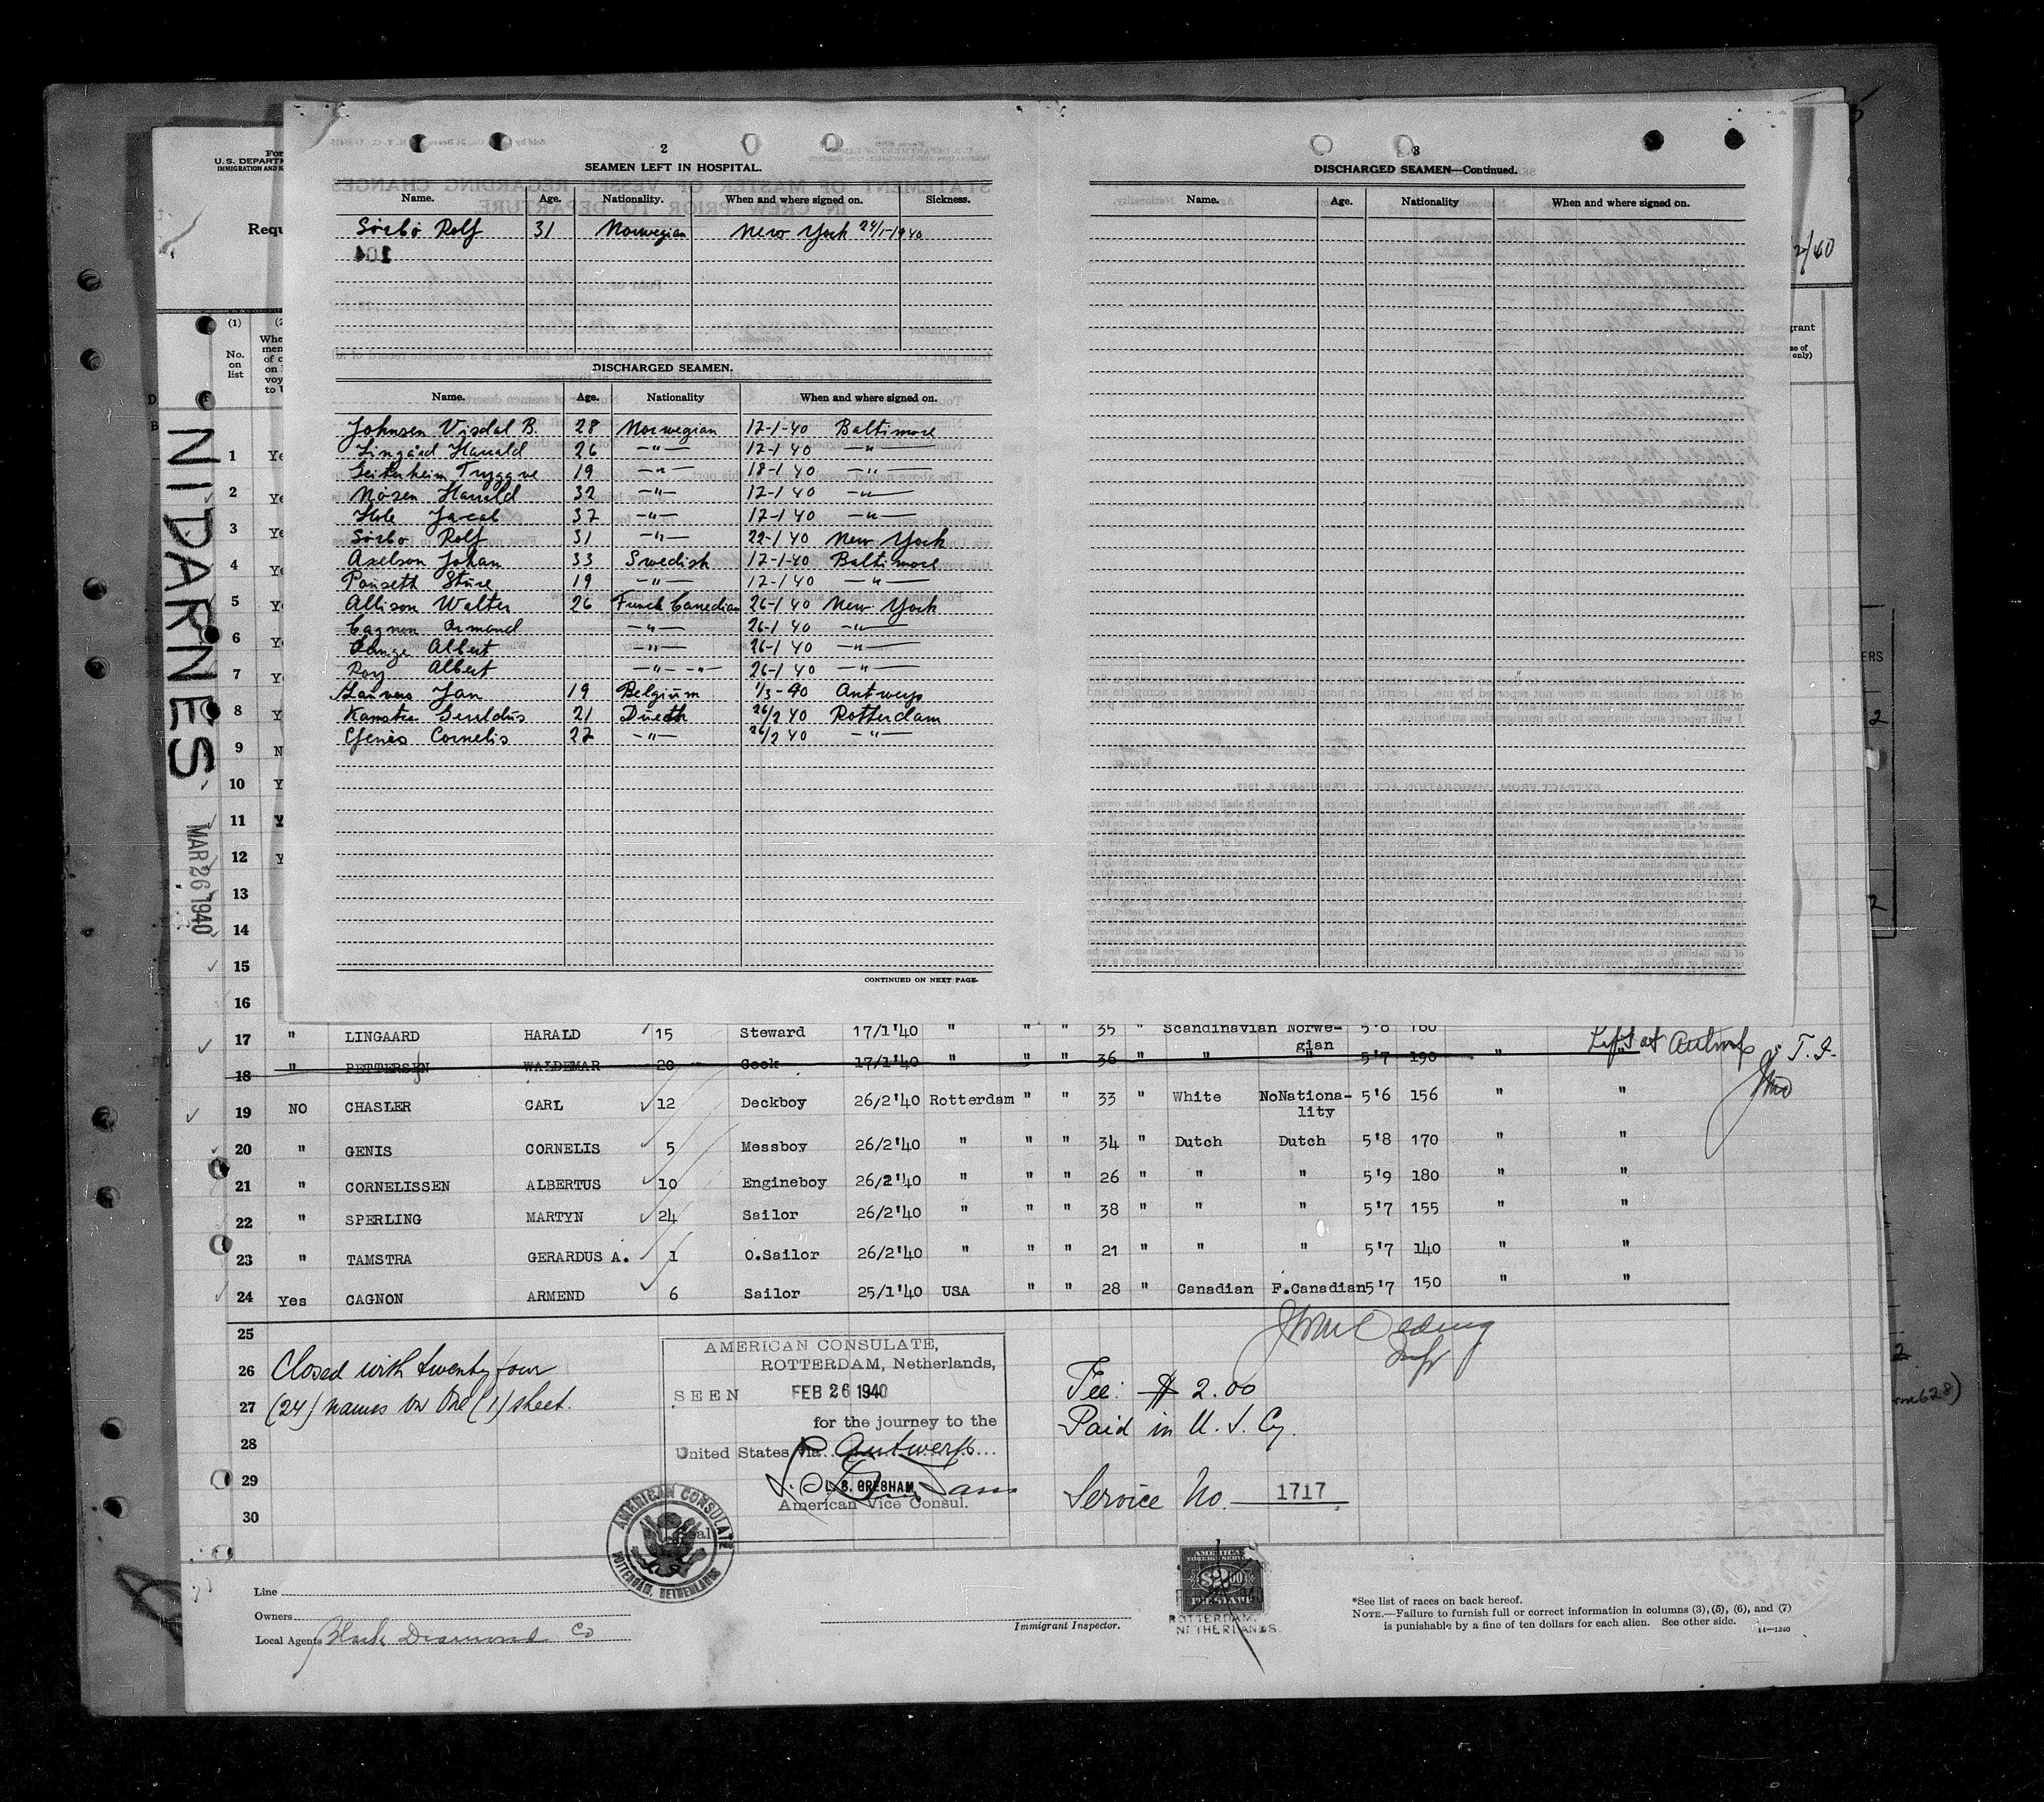 2
SEAMEN LEFT IN HOSPITAL.
Name. Age. Nationality. When and where signed on. Sickness.
Sörbö Rolf 31 Norwegian New York 24/1-1940
104
DISCHARGED SEAMEN.
Name. Age. Nationality When and where signed on.
Johnsen Visdal B. 28 Norwegian 17-1-40 Baltimore
Lingård Harald 26 -"- 17-1 40 -"-
Tryggve 19 -"- 18-1 40 -"-
Harald 32 -"- 17-1 40 -"-
Hole Jacob 37 -"- 17-1 40 -"-
Sörbö Rolf 31 -"- 22-1 40 New York
Axelson Johan 33 Swedish 17-1-40 Baltimore
Sture 19 -"- 17-1 40 -"-
Allison Walter 26 French Canedian 26-1 40 New York
Cagnon Armand -"- 26-1 40 -"-
Albert -"- 26-1 40 -"-
Roy Albert -"- -"- 26-1 40 -"-
Jan 19 Belgium 1/3-40 Antwerp
Kamstra Gereldus 21 Dueth 26/2 40 Rotterdam
Cornelis 27 -"- 26/2 40 -"-
CONTINUED ON NEXT PAGE.
3
DISCHARGED SEAMEN—Continued.
Name. Age. Nationality When and where signed on.
For
U.S. DEPART
IMMIGRATION AND N
Requ
(1)
No. on list
NIDARNES
MAR 26 1940
1 Ye
2 Ye
3 Ye
4 Ye
5 Ye
6 Ye
7 Ye
8 Y
9 N
10 Y
11 Y
12 Y
13
14
15
16
17 " LINGAARD HARALD 15 Steward 17/1'40 " " " 35 " Scandinavian Norwegian 5'8 160
18 " PETTERSEN WALDEMAR 20 Cook 17/1'40 " " " 36 " " " 5'7 190 " Left at Antwerp
19 NO CHASLER CARL 12 Deckboy 26/2'40 Rotterdam " " 33 " White NoNationality 5'6 156 " "
20 " GENIS CORNELIS 5 Messboy 26/2'40 " " " 34 " Dutch Dutch 5'8 170 " "
21 " CORNELISSEN ALBERTUS 10 Engineboy 26/2'40 " " " 26 " " " 5'9 180 " "
22 " SPERLING MARTYN 24 Sailor 26/2'40 " " " 38 " " " 5'7 155 " "
23 " TAMSTRA GERARDUS A. 1 O.Sailor 26/2'40 " " " 21 " " " 5'7 140 " "
24 Yes CAGNON ARMEND 6 Sailor 25/1'40 USA " " 28 " Canadian F.Canadian 5'7 150 " "
25
26 Closed with twenty four
27 (24) names on One (1) sheet.
28
29
30
AMERICAN CONSULATE,
ROTTERDAM, Netherlands,
SEEN FEB 26 1940
for the journey to the
United States via Antwerp
L. S. GRESHAM
American Vice Consul.
Seal
AMERICAN CONSULATE
ROTTERDAM, NETHERLANDS
Fee: $ 2.00
Paid in U. S. Cy.
Service No. 1717
AMERICAN
FOREIGN SERVICE
$2.00
FEE STAMP
ROTTERDAM,
NETHERLANDS.
Line
Owners
Local Agents Black Diamond Co
Immigrant Inspector.
*See list of races on back hereof.
NOTE.—Failure to furnish full or correct information in columns (3), (5), (6), and (7)
is punishable by a fine of ten dollars for each alien. See other side.
14—1240